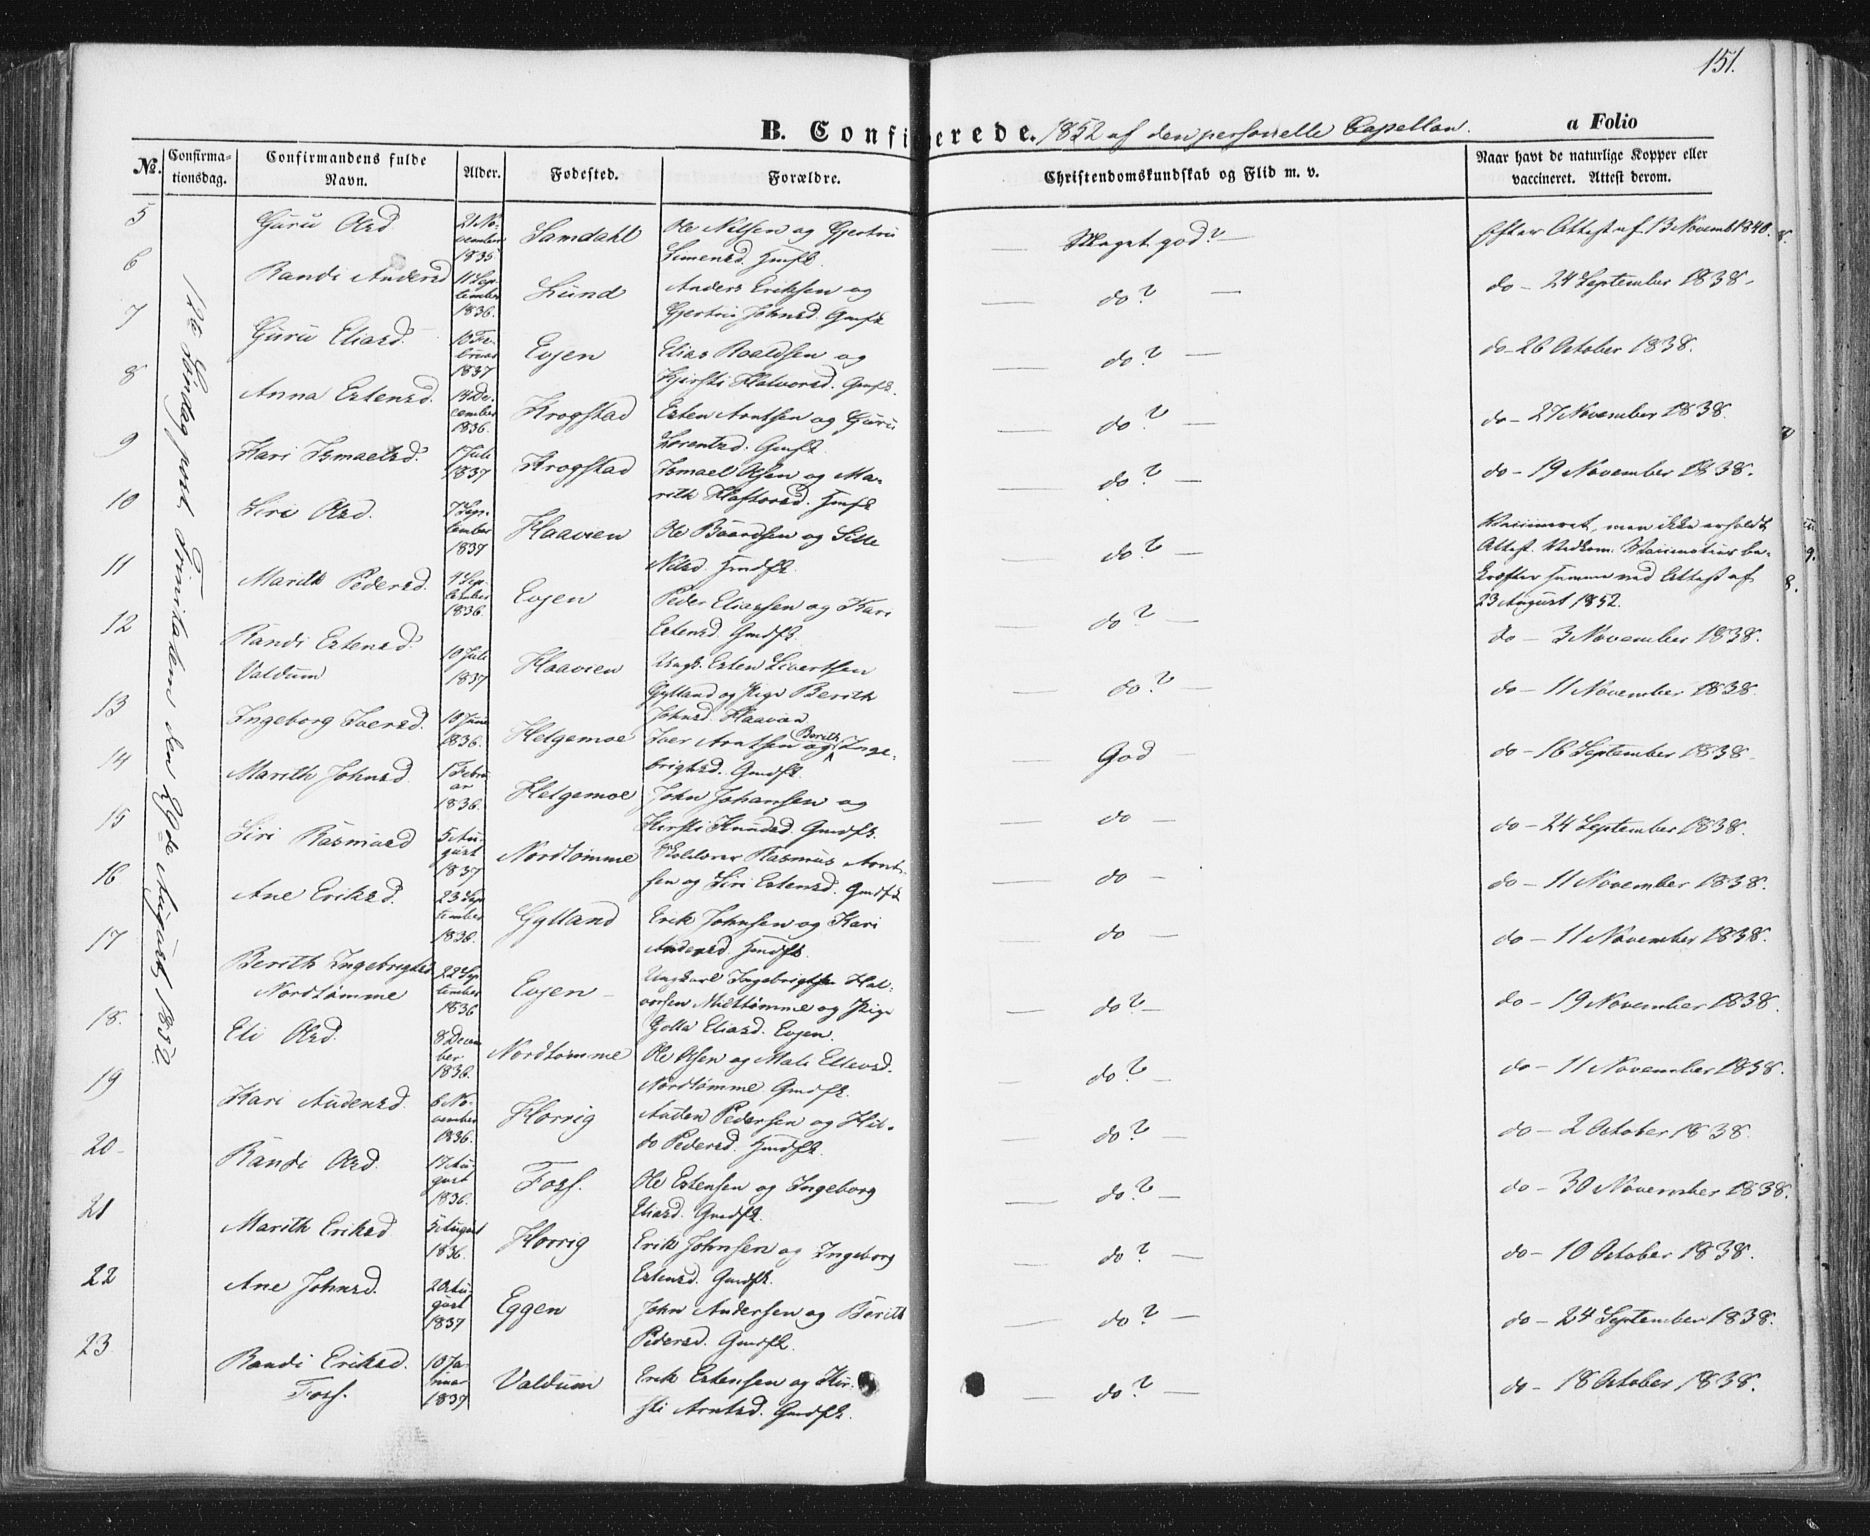 151.
B. Confirmerede. 1852 af den personelle Capellan. a Folio
No. Confirmationsdag. Confirmandens fulde Navn. Alder. Fødested. Forældre. Christendomskundskab og Flid m. v. Naar havt de naturlige Kopper eller vaccineret. Attest derom.
Søndag post Trinitatem den 29de August 1852.
5 Guru Olsd. 21 November 1835 Samdahl Ole Nilsen og Gjertru Simensd. Gmfk. Meget god? Efter Attest af 13 Novemb 1840.
6 Randi Andersd 11 September 1836. Lund Anders Eriksen og Gjertru Johnsd. Gmfk do? do - 24 September 1838.
7 Guru Eliasd. 10 Februar 1837 Evjen Elias Roaldsen og Kjersti Halvorsd. Gmfk. do? do - 26 October 1838.
8 Anna Estensd. 14 December 1836. Krogstad Esten Arntsen og Guru Lorentsd. Gmfk. do? do - 27 November 1838.
9 Kari Ismaelsd. 1 Juli 1837 Krogstad Ismael Olsen og Marith Haftorsd. Hmfk do? do - 19 November 1838.
10 Siri Olsd. 7 September 1837 Haavien Ole Baardsen og Sille Nilsd. Hmdfk. do? Vaccineret, men ikke erholdt Attest. Vedkom. Vaccinatius bekræfter samme ved Attest af 23 August 1852.
11 Marith Pedersd. 4 September 1836. Evjen Peder Eliassen og Kari Estensd. Gmdfk. do? do - 3 November 1838.
12 Randi Estensd. Valdum 10 Juli 1837 Haavien Ungk. Esten Sivertsen Gylland og Pige Berith Johnsd. Haavien do? do - 11 November 1838.
13 Ingeborg Iversd. 10 Juni 1836. Helgemoe Iver Arntsen og Berith Ingebrigtsd. Gmdfk. God do - 16 September 1838.
14 Marith Johnsd. 1 Februar 1836. Helgemoe John Johansen og Kirsti Knudsd. Gmdfk. do do - 24 September 1838.
15 Siri Rasmusd 5 August 1837 Nordtømme Skolelærer Rasmus Arntsen og Siri Estensd. Gmdfk do do - 11 November 1838.
16 Ane Eriksd. 23 September 1836. Gylland Erik Johnsen og Kari Andersd. Hmdfk. do do - 11 November 1838.
17 Berith Ingebrigtsd Nordtømme 22 September 1836 Evjen Ungkarl Ingebrigtsen Halvorsen Midttømme og Pige Golla Eliasd. Evjen. do? do - 19 November 1838.
18. Eli Olsd. 8 December 1836. Nordtømme Ole Olsen og Mali Ellevsd. Nordtømme Gmdfk. do? do - 11 November 1838.
19 Kari Audensd. 6 November 1836. Horrig Auden Pedersen og Hildo Pedersd. Hmdfk. do? do - 2 October 1838.
20 Randi Olsd. 17 August 1836. Foss. Ole Estensen og Ingeborg Eliasd. Gmdfk. do? do - 30 November 1838.
21 Marith Eriksd 5 August 1836. Horrig Erik Johnsen og Ingeborg Estensd. Gmdfk. do? do - 10 October 1838.
22 Ane Johnsd. 20 August 1837 Eggen John Andersen og Berith Pedersd. Gmdfk. do? do - 24 September 1838.
23 Randi Eriksd. Foss. 10 Januar 1837 Valdum Erik Estensen og Kirsti Arntsd. Gmdfk. do? do - 18 October 1838.